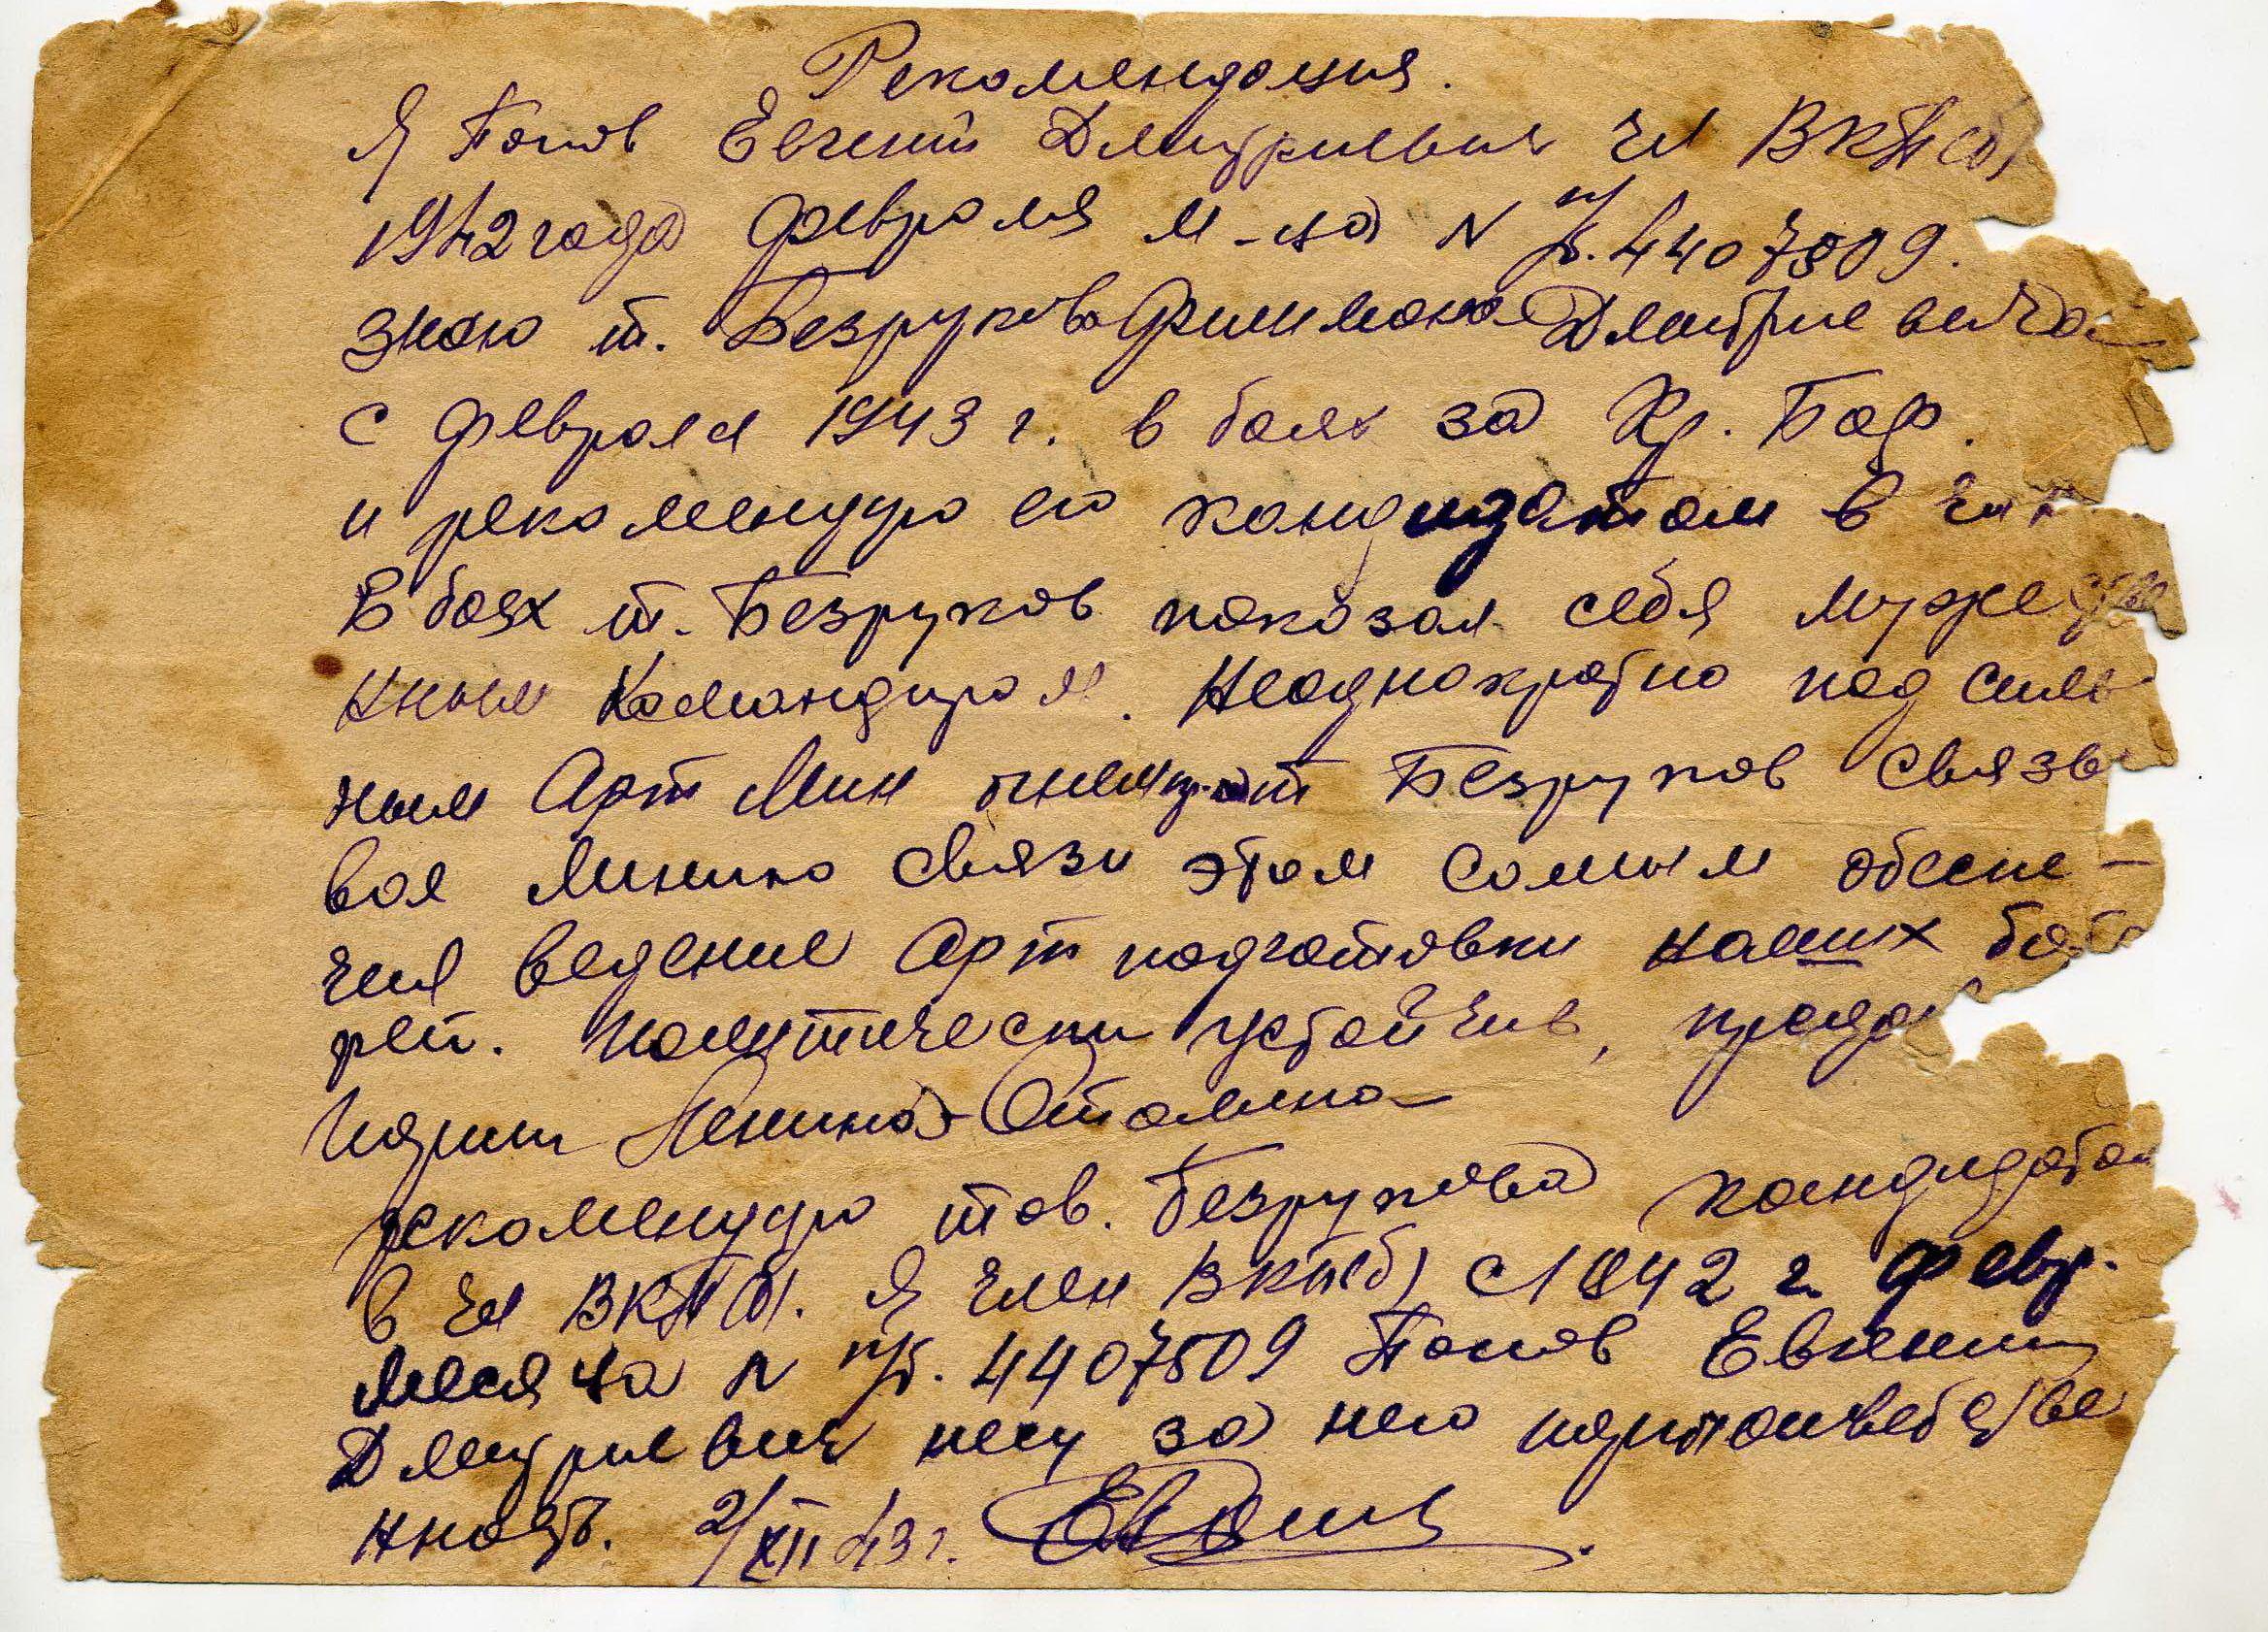 Рекомендация.
Я Попов Евгений Дмитриевич чл ВКП(б)
1942 года февраля м-ца N п/б. 4407509.
знаю т. Безрукова Филимона Дмитриевича
с февраля 1943 г. в боях за Кр. Бор.
и рекомендую его кандидатом в чл
В боях т. Безруков показал себя мужестве
нным командиром. Неоднократно под силь
ным Арт Мин огнем пр-ка т Безруков связы
вал линию связи этом самым обеспе-
чил ведение Арт подготовки наших бата
рей. Политически устойчив, предан
партии Ленина-Сталина
рекомендую тов. Безрукова кандидатом
в чл ВКП(б). Я член ВКП(б) с 1942 г. февр.
месяца N п/б. 4407509 Попов Евгений
Дмитриевич несу за него партответстве
нность. 2/XII 43 г.